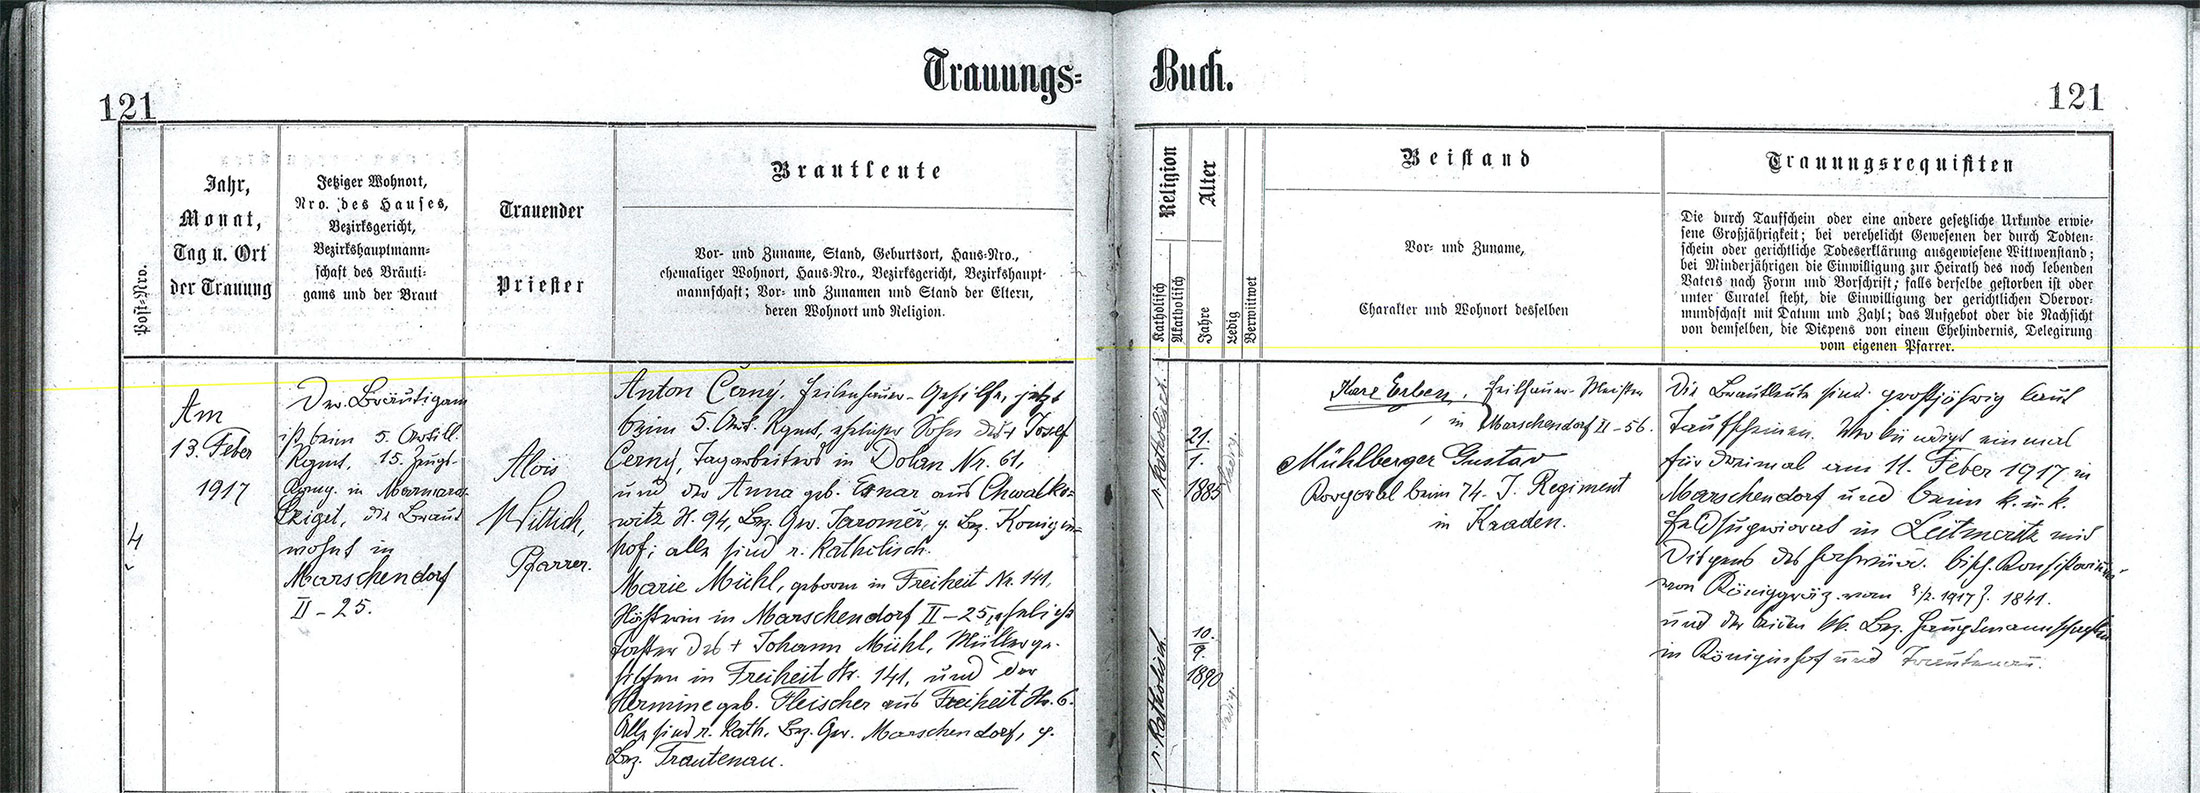 Trauungs=
Buch.
121
121
Post=Nro.
Jahr,
Monat,
Tag u. Ort
der Trauung
Jetziger Wohnort,
Nro. des Hauses,
Bezirksgericht,
Bezirkshauptmann=
schaft des Bräuti=
gams und der Braut
Trauender
Priester
Brautleute
Vor= und Zuname, Stand, Geburtsort, Haus=Nro.,
ehemaliger Wohnort, Haus=Nro., Bezirksgericht, Bezirkshaupt=
mannschaft; Vor= und Zunamen und Stand der Eltern,
deren Wohnort und Religion.
Religion
Katholisch
Akatholisch
Alter
Jahre
Ledig
Verwitwet
Beistand
Vor= und Zuname,
Charakter und Wohnort desselben
Trauungsrequisiten
Die durch Taufschein oder eine andere gesetzliche Urkunde erwie=
sene Großjährigkeit; bei verehelicht Gewesenen der durch Todten=
schein oder gerichtliche Todeserklärung ausgewiesene Witwenstand;
bei Minderjährigen die Einwilligung zur Heirath des noch lebenden
Vaters nach Form und Vorschrift; falls derselbe gestorben ist oder
unter Curatel steht, die Einwilligung der gerichtlichen Obervor=
mundschaft mit Datum und Zahl; das Aufgebot oder die Nachsicht
von demselben, die Dispens von einem Ehehindernis, Delegirung
vom eigenen Pfarrer.
4
Am
13. Feber
1917
Der Bräutigam
ist beim 5. Artill.
Rgmt. 15.
in Marmaros
Sziget, die Braut
wohnt in
Marschendorf
II – 25.
Alois
Wittich,
Pfarrer.
Anton Černý, Feilenhauer-Gehilfe, jetzt
beim 5. Art. Rgmt, ehelicher Sohn des + Josef
Černý, Tagarbeiters in Dolan Nr. 61,
und der Anna geb. aus Chwalko=
witz H. 94, Bez. Ger. Jaroměř, p. Bez. Königin=
hof; alle sind r. katholisch.
Marie Mühl, geboren in Freiheit Nr. 141,
in Marschendorf II – 25, eheliche
Tochter des + Johann Mühl, Müllerge=
hilfen in Freiheit Nr. 141, und der
Hermine geb. Fleischer aus Freiheit Nr. 6.
Alle sind r. kath. Bez. Ger. Marschendorf, p.
Bez. Trautenau.
r. katholisch.
21.
1.
1885
ledig.
r. katholisch.
10.
9.
1890
ledig.
Karl Erben, Feilhauer-Meister
in Marschendorf II – 56.
Mühlberger Gustav
Korporal beim 74. I. Regiment
in Kaaden.
Die Brautleute sind großjährig laut
Taufscheinen. Verkündigt einmal
für dreimal am 11. Feber 1917 in
Marschendorf und beim k. u. k.
Feldsuperiorat in Leitmeritz mit
Dispens des hochwürd. bisch. Konsistoriums
von Königgräz vom 1917 Z. 1841.
und der beiden kk. Bez. Hauptmannschaften
in Königinhof und Trautenau.